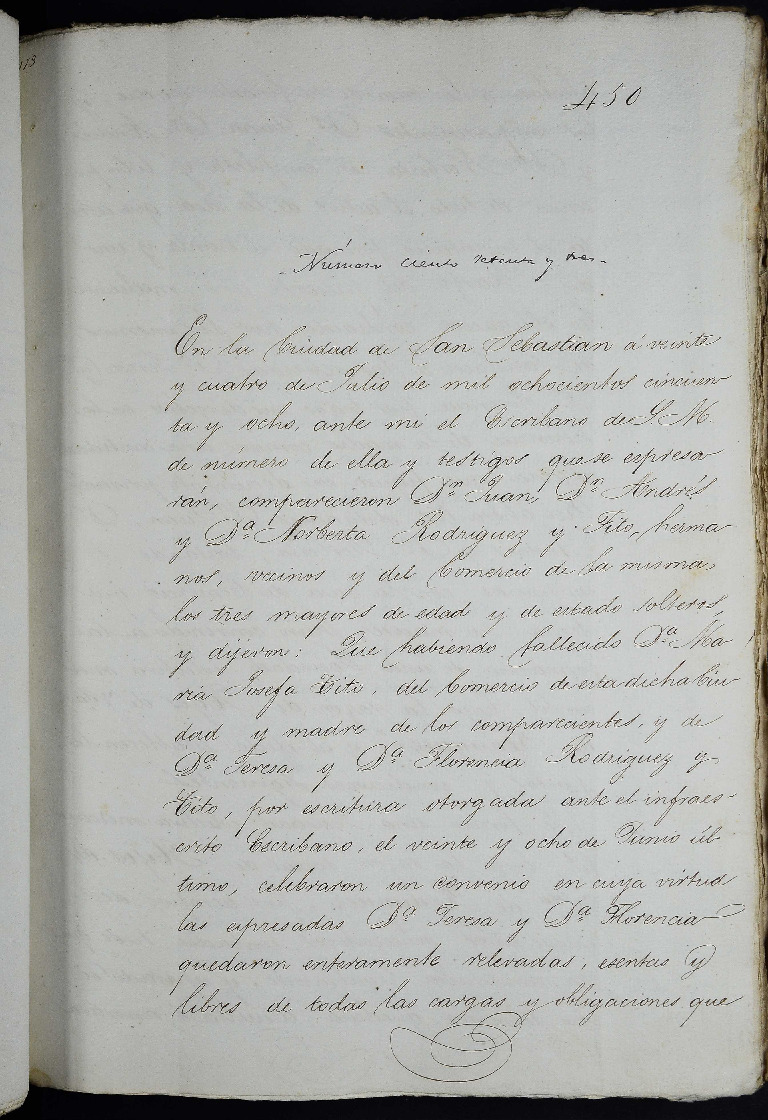 113
450
Número ciento setenta y tres
En la Ciudad de San Sebastian á veinte
y cuatro de Julio de mil ochocientos cincuen
ta y ocho, ante mi el Escribano de S. M.
de número de ella y testigos que se espresa
rán, comparecieron Dn Juan, Dn Andrés
y Da Norberta Rodriguez y Tito, herma
nos, vecinos y del Comercio de la misma,
los tres mayores de edad y de estado solteros,
y dijeron: Que habiendo fallecido Da Ma
ria Josefa Tito, del Comercio de esta dicha Ciu
dad y madre de los comparecientes y de
Da Teresa y Da Florencia Rodriguez y
Tito, por escritura otorgada ante el infraes-
crito Escribano, el veinte y ocho de Junio úl
timo, celebraron un convenio en cuya virtud
las espresadas Da Teresa y Da Florencia
quedaron enteramente relevadas, esentas y
libres de todas las cargas y obligaciones que